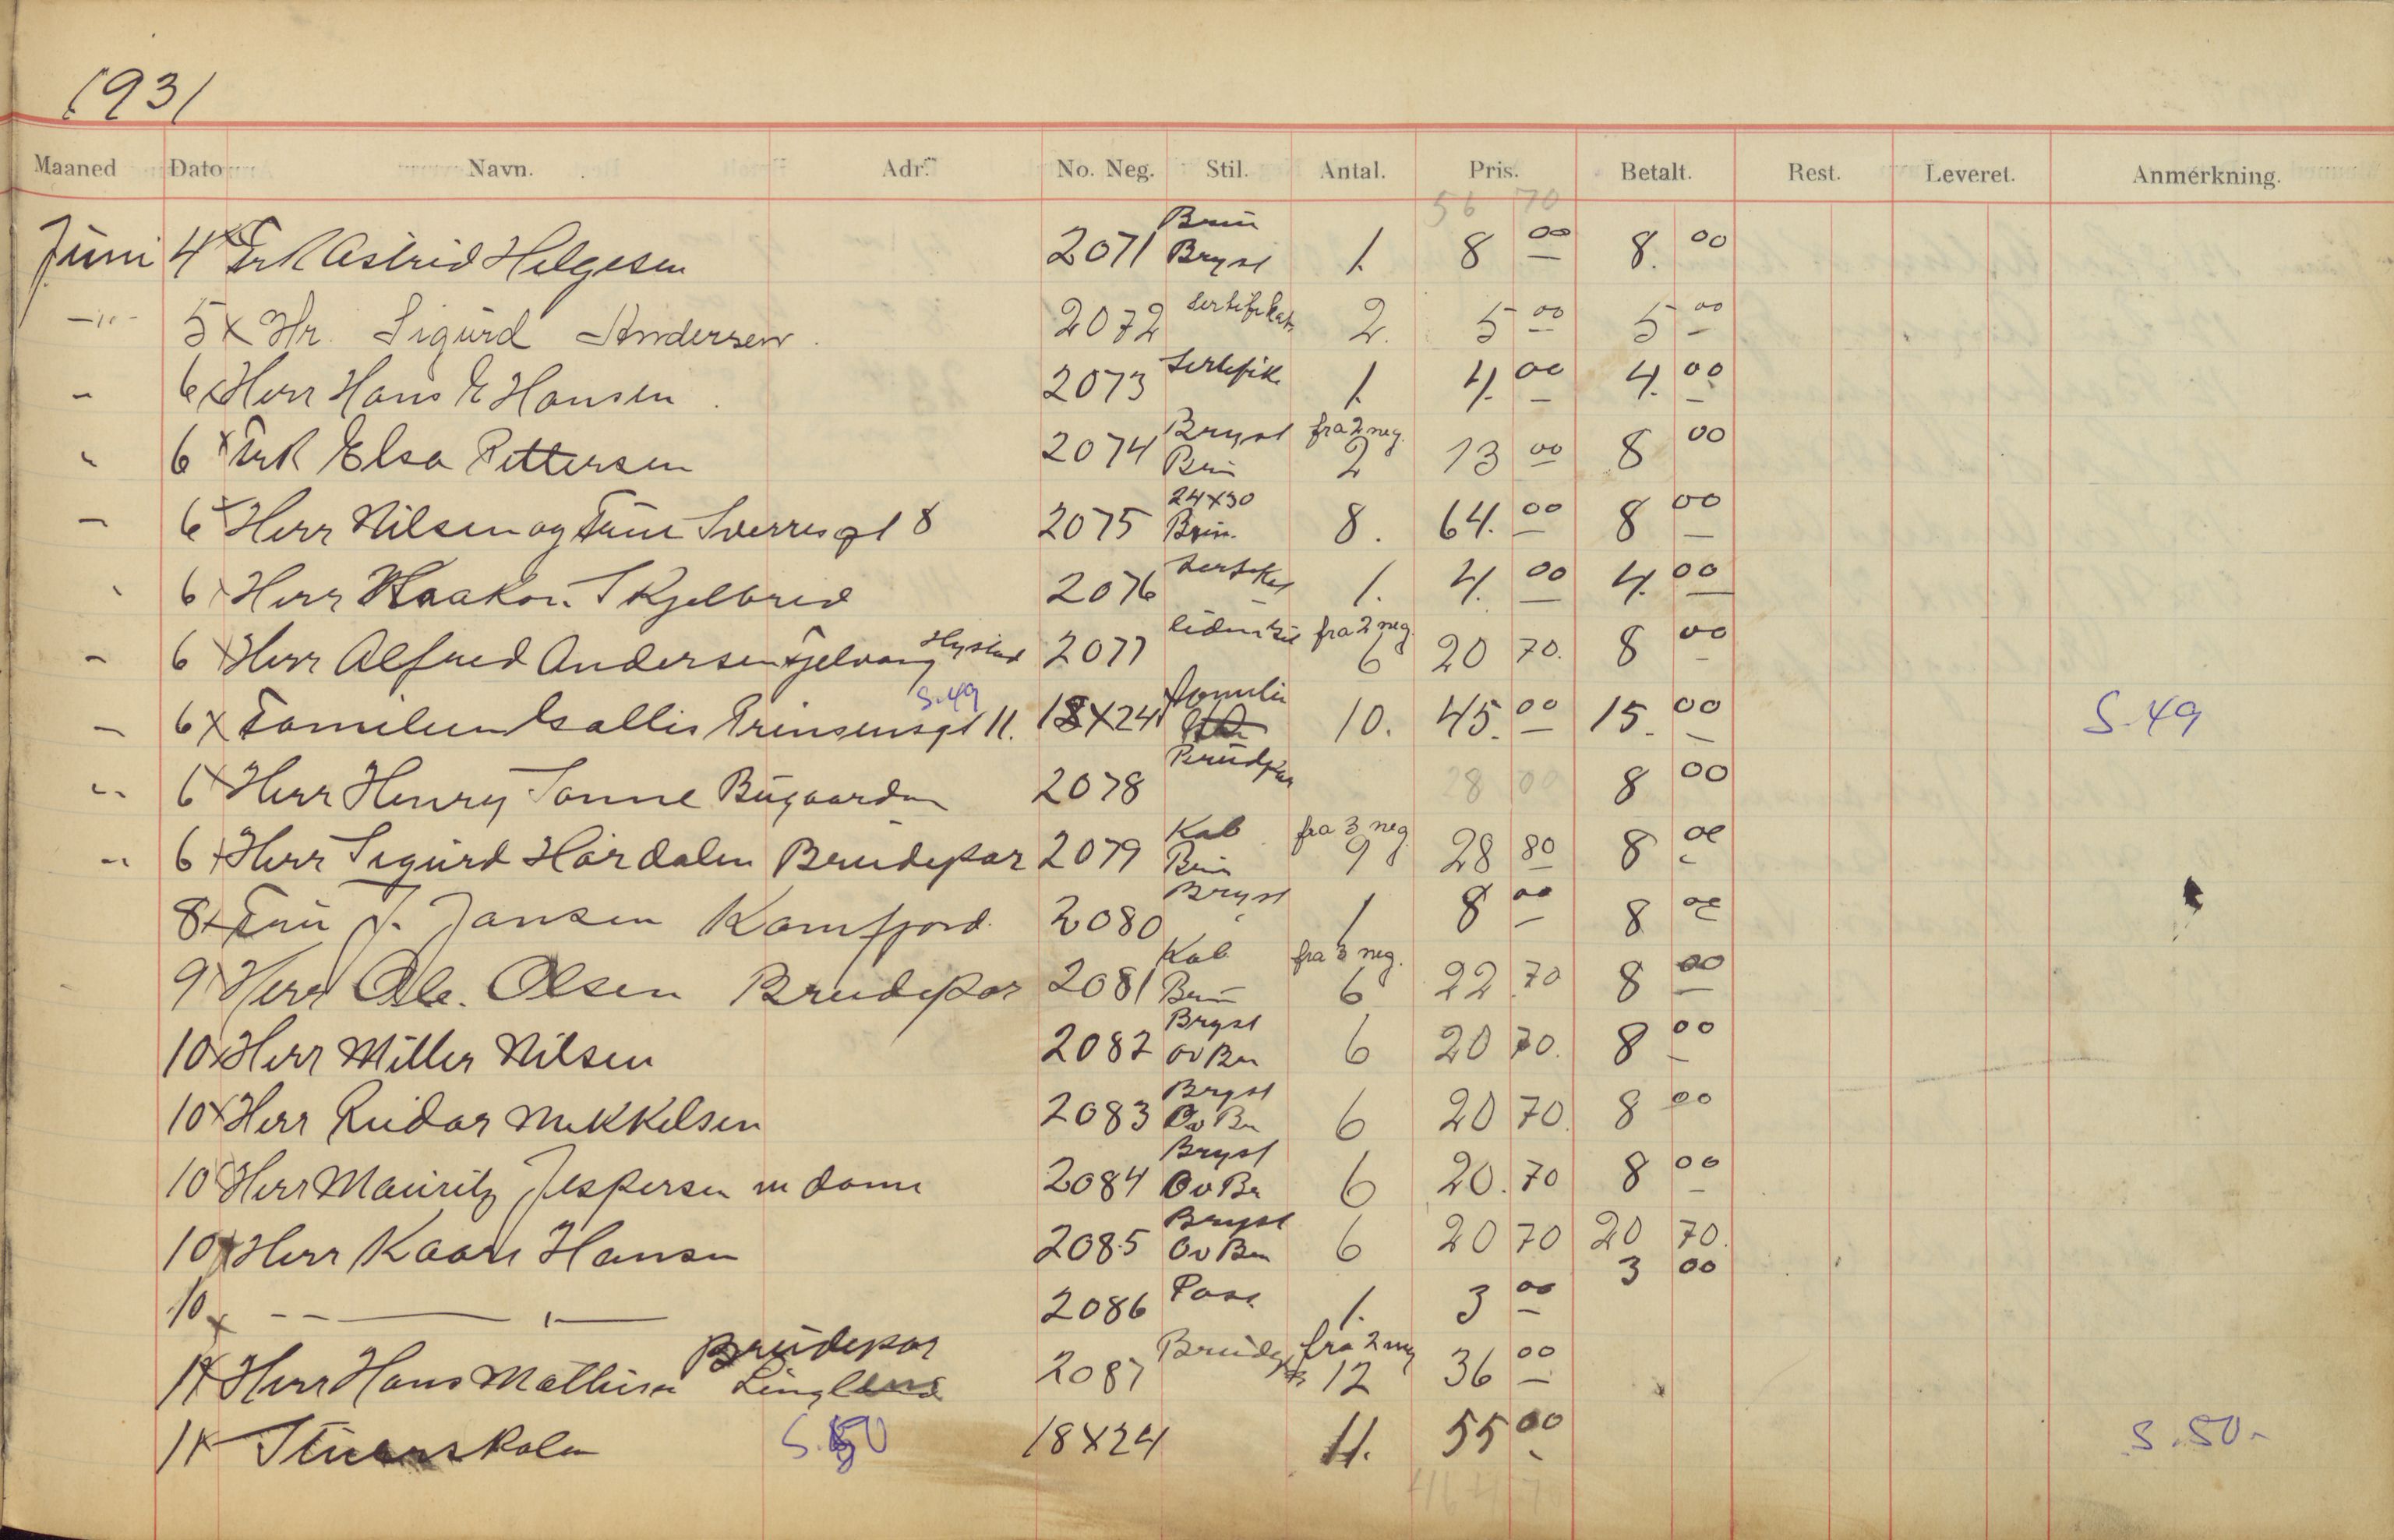 1931
Maaned Dato Navn. Adr. No. Neg. Stil. Antal. Pris. Betalt. Rest. Leveret. Anmerkning.
56 70
Juni 4 x Frk Astrid Helgesen 2071 Brün Bryst 1. 8 00 8. 00
—"- 5 x Hr. Sigurd Andersen. 2072 Sertifikat. 2. 5 00 5 00
- 6 x Herr Hans E Hansen. 2073 Sertifik. 1. 4. 00 4. 00
" 6 x Frk Elsa Pettersen 2074 Bryst Brün fra 2 neg. 2 13 00 8 00
- 6 x Herr Nilsen og Frue Sverresgt 8 2075 24x30 Brün. 8. 64. 00 8 00
" 6 x Herr Haakon Skjelbred 2076 1. 4. 00 4. 00
- 6 x Herr Alfred Andersen 2077 fra 2 neg. 6 20 70. 8 00
S. 49
- 6 x Familien Isallis Prinsensgt 11. 18x24 Familie 10. 45. 00 15. 00 S. 49
" 6 x Herr Henry Tonne Bugaarden 2078 Brudpar 28 00 8 00
" 6 x Herr Sigurd Hårdalen Brudepar 2079 Kab Brün fra 3 neg 9 28 80 8 00
8 x Fru J. Jansen Kamfjord. 2080 Bryst 1 8 00 8 00
9 x Herr Ole. Olsen Brudepar 2081 Kab Brün fra 3 neg. 6 22 70 8 00
10 x Herr Miller Nilsen 2082 Bryst Ov Bn 6 20 70. 8 00
10 x Herr Reidar Mikkelsen 2083 Bryst Ov Bn 6 20 70. 8 00
10 Herr Mauritz Jespersen m dame 2084 Bryst Ov Br 6 20. 70 8 00
10 x Herr Kaare Hansen 2085 Bryst Ov Bn 6 20 70 20 70.
10 x —"— 2086 Pass. 1. 3 00 3 00
Brudepar
11 x Herr Hans Mathisen 2087 Brudep fra 2 neg 12 36 00
11 x S. 50 18x24 11. 55 00 S. 50.